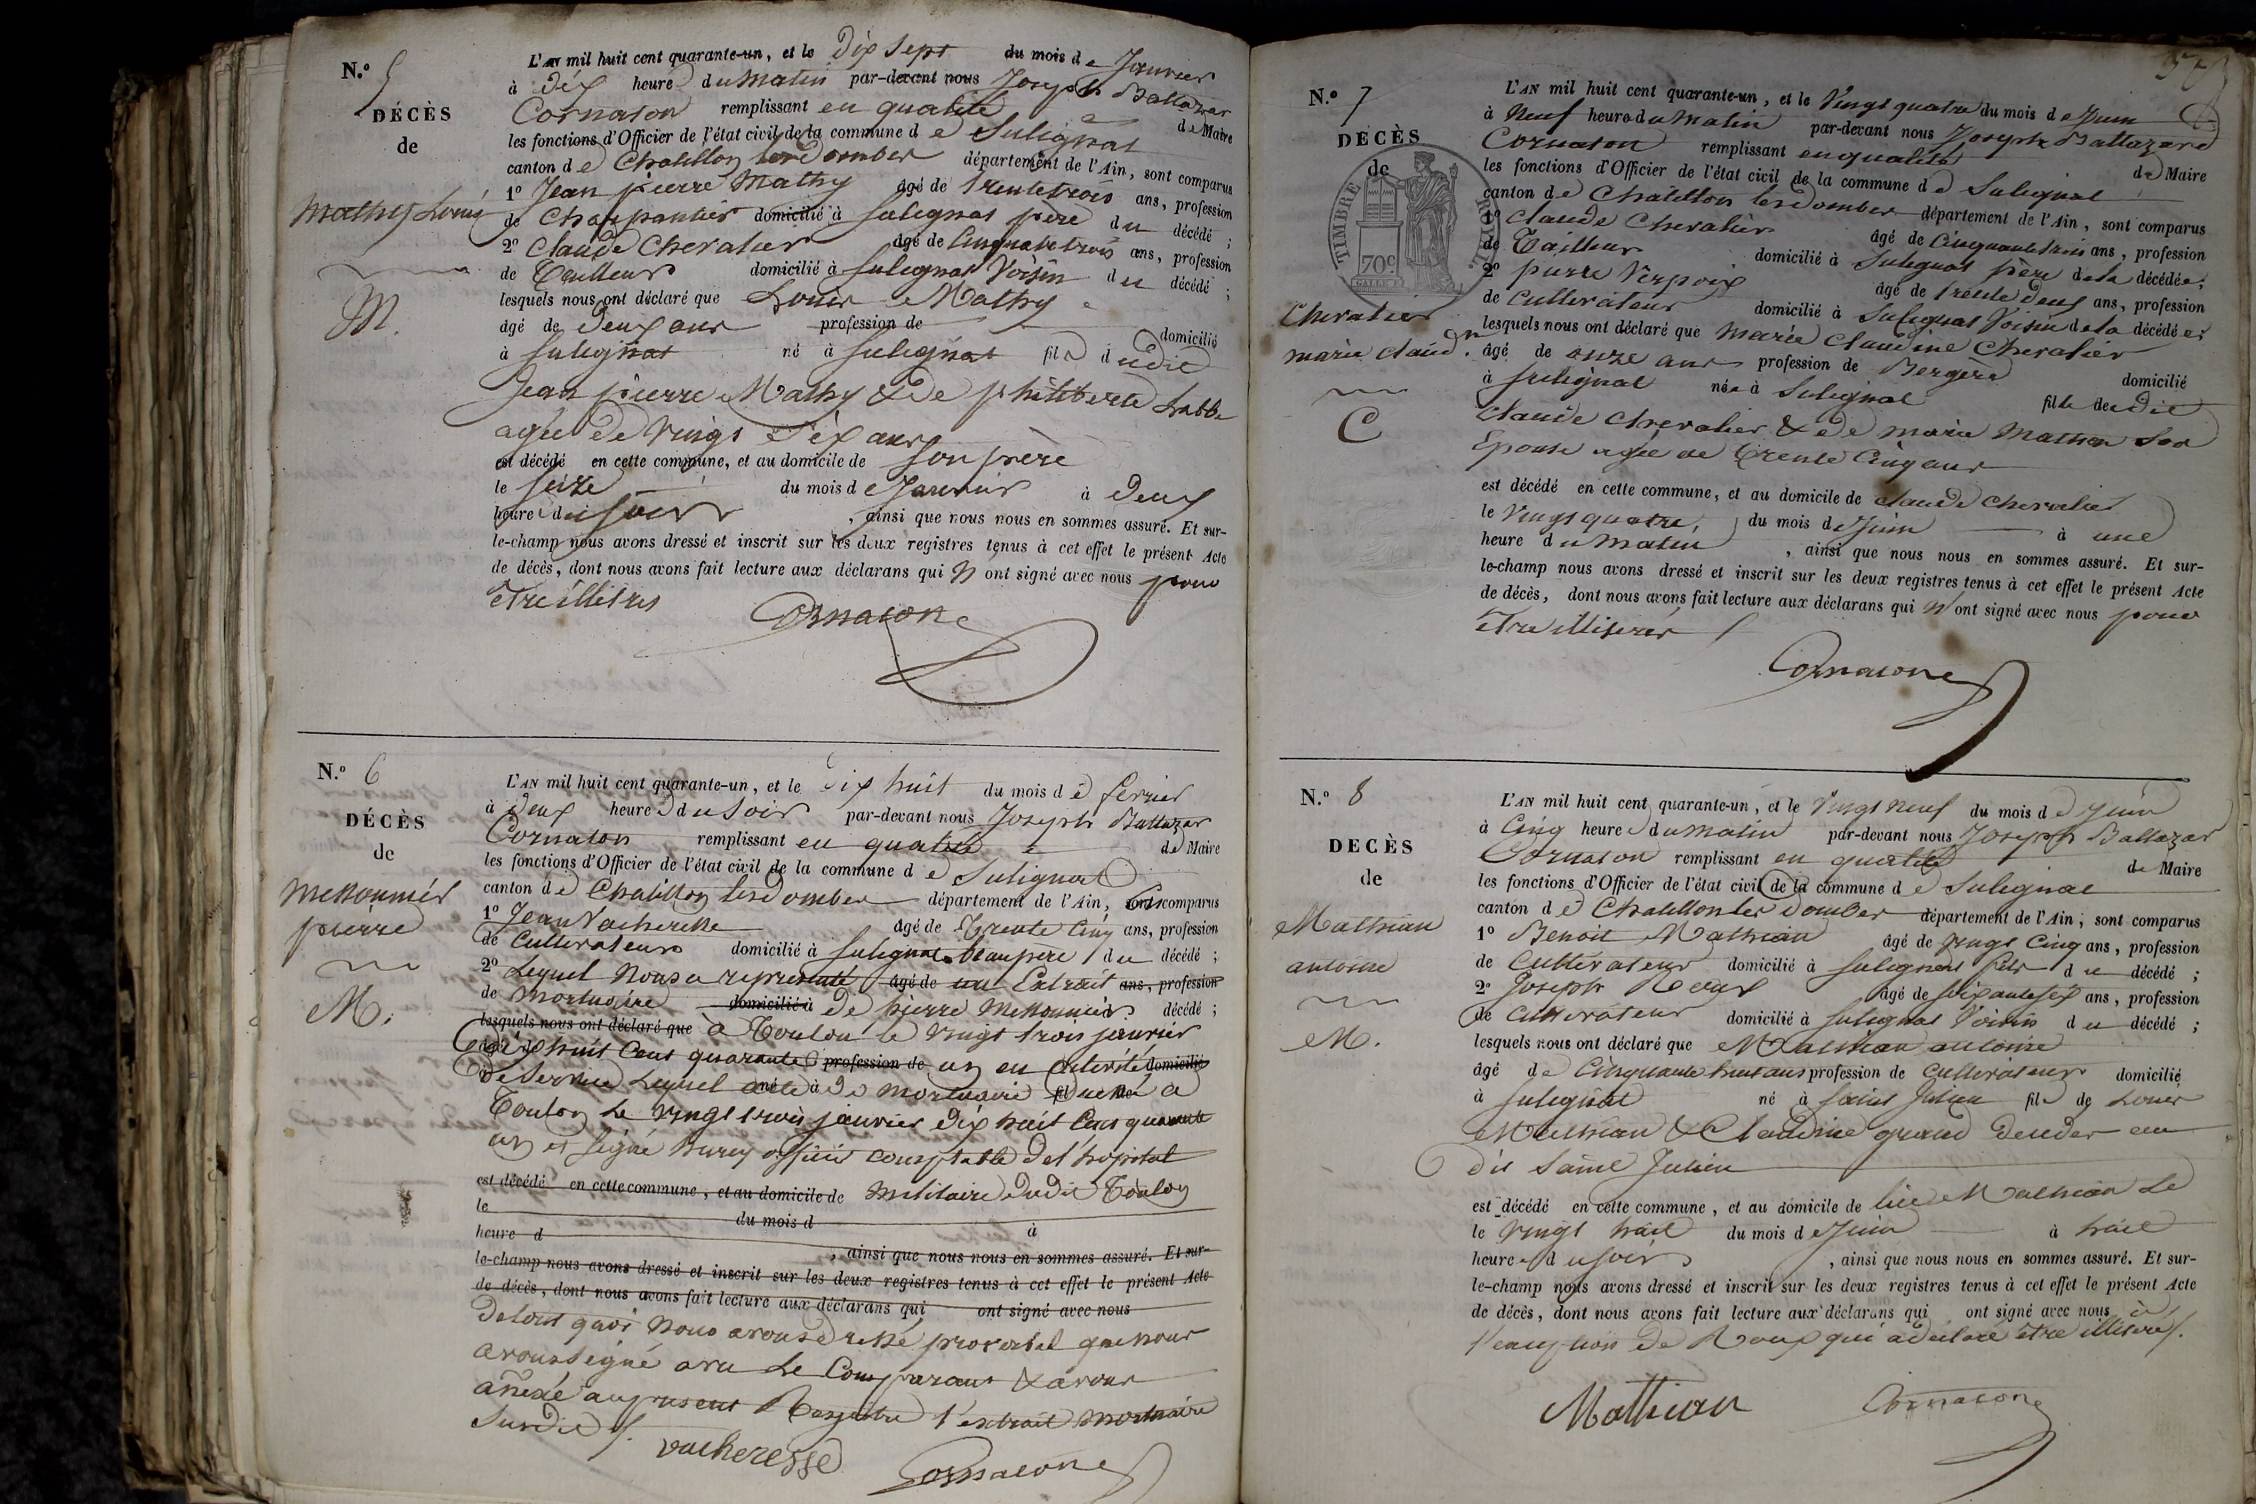 N.o 5
DÉCÈS
de
Mathy Louis
M.
L'AN mil huit cent quarante-un, et le Dix Sept du mois de Janvier
à dix heure du matin par-devant nous Joseph Baltazar
Cornaton remplissant en qualité de Maire
les fonctions d'Officier de l'état civil de la commune de Sulignat
canton de Chatillon les Dombes département de l'Ain, sont comparus
1o Jean pierre Mathy âgé de trente trois ans, profession
de Charpantier domicilié à Sulignat père du décédé ;
2o Claude Chevalier âgé de Cinquante trois ans, profession
de Tailleur domicilié à Sulignat Voisin du décédé ;
lesquels nous ont déclaré que Louis Mathy
âgé de deux ans profession de domicilié
à Sulignat né à Sulignat fils dudit
Jean pierre Mathy & de philiberte
agée de vingt Six ans
est décédé en cette commune, et au domicile de Son père
le Seize du mois de Janvier à deux
heure du Soir, ainsi que nous nous en sommes assuré. Et sur-
le-champ nous avons dressé et inscrit sur les deux registres tenus à cet effet le présent Acte
de décès, dont nous avons fait lecture aux déclarans qui N ont signé avec nous pour
etre illitrés
Cornaton
N.o 6
DÉCÈS
de
pierre
M.
L'AN mil huit cent quarante-un, et le Dix huit du mois de fevrier
à deux heure du Soir par-devant nous Joseph Baltazar
Cornaton remplissant en qualité de Maire
les fonctions d'Officier de l'état civil de la commune de Sulignat
canton de Chatillon les Dombes département de l'Ain, comparus
1o Jean Vacheresse âgé de Trente Cinq ans, profession
de Cultivateur domicilié à Sulignat beaupère du décédé ;
2o Lequel Nous a representé âgé de un Extrait ans, profession
de mortuaire domicilié à de pierre décédé ;
lesquels nous ont déclaré que à Toulon le vingt trois janvier
dix huit Cent quarante profession de un en activité domicilié
de Service Lequel acte né à de mortuaire fil à
Toulon Le vingt trois janvier Dix huit Cent quarante
un et Signé officier comptable de l'hopital
est décédé en cette commune, et au domicile de militaire dudit Toulon
le du mois d à
heure d , ainsi que nous nous en sommes assuré. Et sur-
le-champ nous avons dressé et inscrit sur les deux registres tenus à cet effet le présent Acte
de décès, dont nous avons fait lecture aux déclarans qui ont signé avec nous
De tout quoi Nous avons dressé que nous
avons Signé avec Le Comparant & avons
annexé au present Registre l'extrait mortuaire
Susdit
vacheresse Cornaton
N.o 7
DÉCÈS
de
TIMBRE ROYAL
70c
Chevalier
marie claud.ne
C
L'AN mil huit cent quarante-un, et le Vingt quatre du mois de Juin
à Neuf heure du Matin par-devant nous Joseph Baltazard
Cornaton remplissant en qualité de Maire
les fonctions d'Officier de l'état civil de la commune de Sulignat
canton de Chatillon les Dombes département de l'Ain, sont comparus
1o Claude Chevalier âgé de Cinquante trois ans, profession
de Tailleur domicilié à Sulignat père de la décédée ;
2o pierre Verpoix âgé de trente deux ans, profession
de Cultivateur domicilié à Sulignat Voisin de la décédée ;
lesquels nous ont déclaré que Marie Claudine Chevalier
âgé de onze ans profession de Bergère domicilié
à Sulignat née à Sulignat fille dedit
Claude Chevalier & de marie Son
Epouse agée de Trente Cinq ans
est décédé en cette commune, et au domicile de Claude Chevalier
le Vingt quatre, du mois de Juin à une
heure du Matin, ainsi que nous nous en sommes assuré. Et sur-
le-champ nous avons dressé et inscrit sur les deux registres tenus à cet effet le présent Acte
de décès, dont nous avons fait lecture aux déclarans qui N' ont signé avec nous pour
Cornaton
N.o 8
DÉCÈS
de
Mathian
antoine
M.
L'AN mil huit cent quarante-un, et le Vingt Neuf du mois de Juin
à Cinq heure du Matin par-devant nous Joseph Baltazar
Cornaton remplissant en qualité de Maire
les fonctions d'Officier de l'état civil de la commune de Sulignat
canton de Chatillon les Dombes département de l'Ain, sont comparus
1o Benoit Mathian âgé de vingt Cinq ans, profession
de Cultivateur domicilié à Sulignat fils du décédé ;
2o Joseph Roux âgé de ans, profession
de Cultivateur domicilié à Sulignat Voisin du décédé ;
lesquels nous ont déclaré que Mathian antoine
âgé de Cinquante huit ans profession de Cultivateur domicilié
à Sulignat né à Saint Julien fils de Louis
Mathian & Claudine grand au
dit Saint Julien
est décédé en cette commune, et au domicile de Mathian Le
le Vingt huit du mois de Juin à huit
heure du Soir, ainsi que nous nous en sommes assuré. Et sur-
le-champ nous avons dressé et inscrit sur les deux registres tenus à cet effet le présent Acte
de décès, dont nous avons fait lecture aux déclarans qui ont signé avec nous à
l'exception de Roux qui a déclaré être
Mathian Cornaton